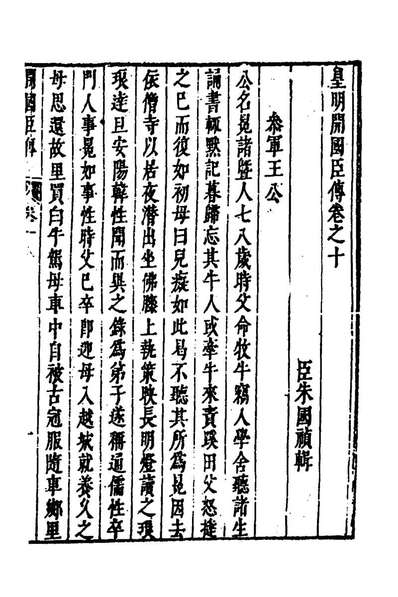 皇明開國臣傳卷之十
臣朱國禎輯
叅軍王公
公名冕諸暨人七八歲時父命牧牛竊入學舍聽諸生
誦書輒默記暮歸忘其牛人或牽牛來責蹊田父怒撻
之已而復如初母曰兒癡如此曷不聽其所為冕因去
依僧寺以居夜潛出坐佛膝上執策映長明燈讀之琅
琅達旦安陽韓性聞而異之錄為弟子遂稱通儒性卒
門人事冕如事性時父已卒即迎母入越城就養久之
母思還故里買白牛駕母車中自被古冠服隨車鄉里
開國臣傳